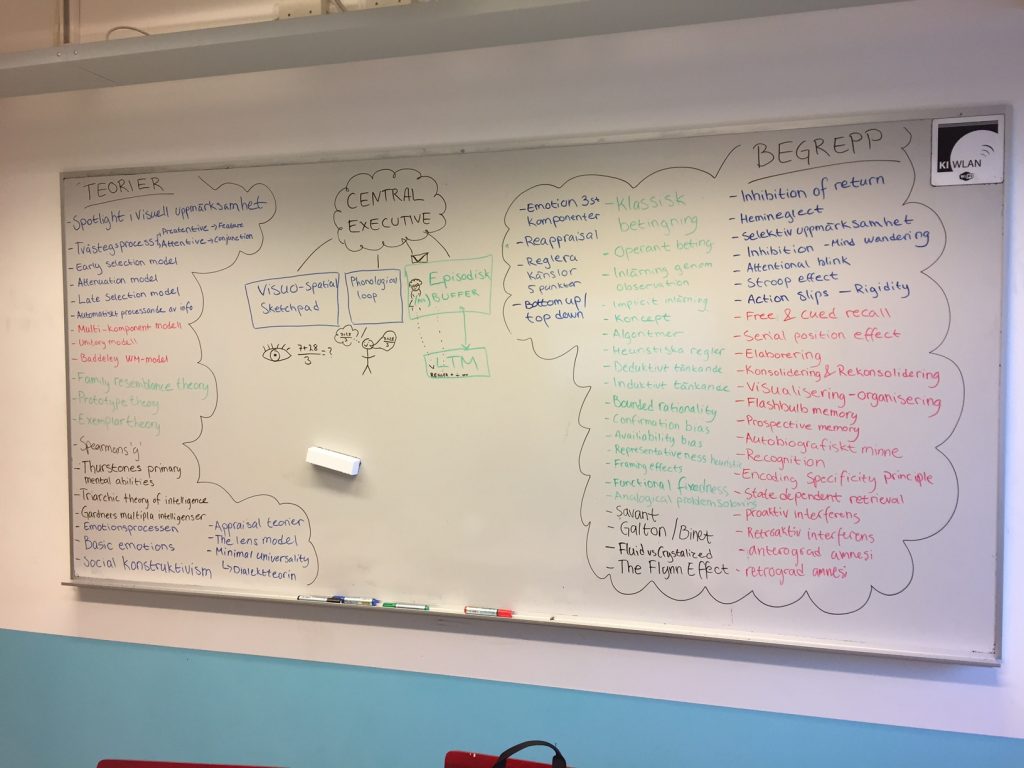 TEORIER
- Spotlight i Visuell uppmärksamhet
- Tvåstegsprocess
Preatentive → Feature
Attentive → Conjunction
- Early selection model
- Attenuation model
- Late Selection model
- Automatiskt processande av info
- Multi-komponent modell
- Unitary modell
- Baddeley WM-model
- Family resemblance theory
- Prototype theory
- Exemplar theory
Spearmans 'g'
- Thurstones primary
mental abilities
- Triarchic theory of intelligence
- Gardners multipla intelligenser
- Emotionsprocessen
- Basic emotions
- Social Konstruktivism
- Appraisal teorier
- The lens model
- Minimal universality
↳ Dialektteorin
CENTRAL
EXECUTIVE
VISUO-SPATIAL
Sketchpad
Phonological
loop
Episodisk
BUFFER
LTM
7+28
3
= ?
BEGREPP
- Emotion 3st
Komponenter
- Reappraisal
- Reglera
Känslor
5 punkter
- Bottom up/
top down
- Klassisk
betingning
- Operant beting
- Inlärning genom
observation
- Implicit inlärning
- Koncept
- Algoritmer
- Heuristiska regler
- Deduktivt tänkande
- Induktivt tänkande
- Bounded rationality
- Confirmation bias
- Availability bias
- Representativeness heuristic
- Framing effects
- Functional fixedness
- Analogical problem solving
- Savant
- Galton / Binet
- Fluid vs Crystalized
- The Flynn Effect
- Inhibition of return
- Hemineglect
- Selektiv uppmärksamhet
- Inhibition - Mind wandering
- Attentional blink
- Stroop effect
- Action slips - Rigidity
- Free & Cued recall
- Serial position effect
- Elaborering
- Konsolidering & Rekonsolidering
- Visualisering - organisering
- Flashbulb memory
- Prospective memory
- Autobiografiskt minne
- Recognition
- Encoding Specificity principle
- State dependent retrieval
- proaktiv interferens
- Retroaktiv interferens
- anterograd amnesi
- retrograd amnesi
KI WLAN